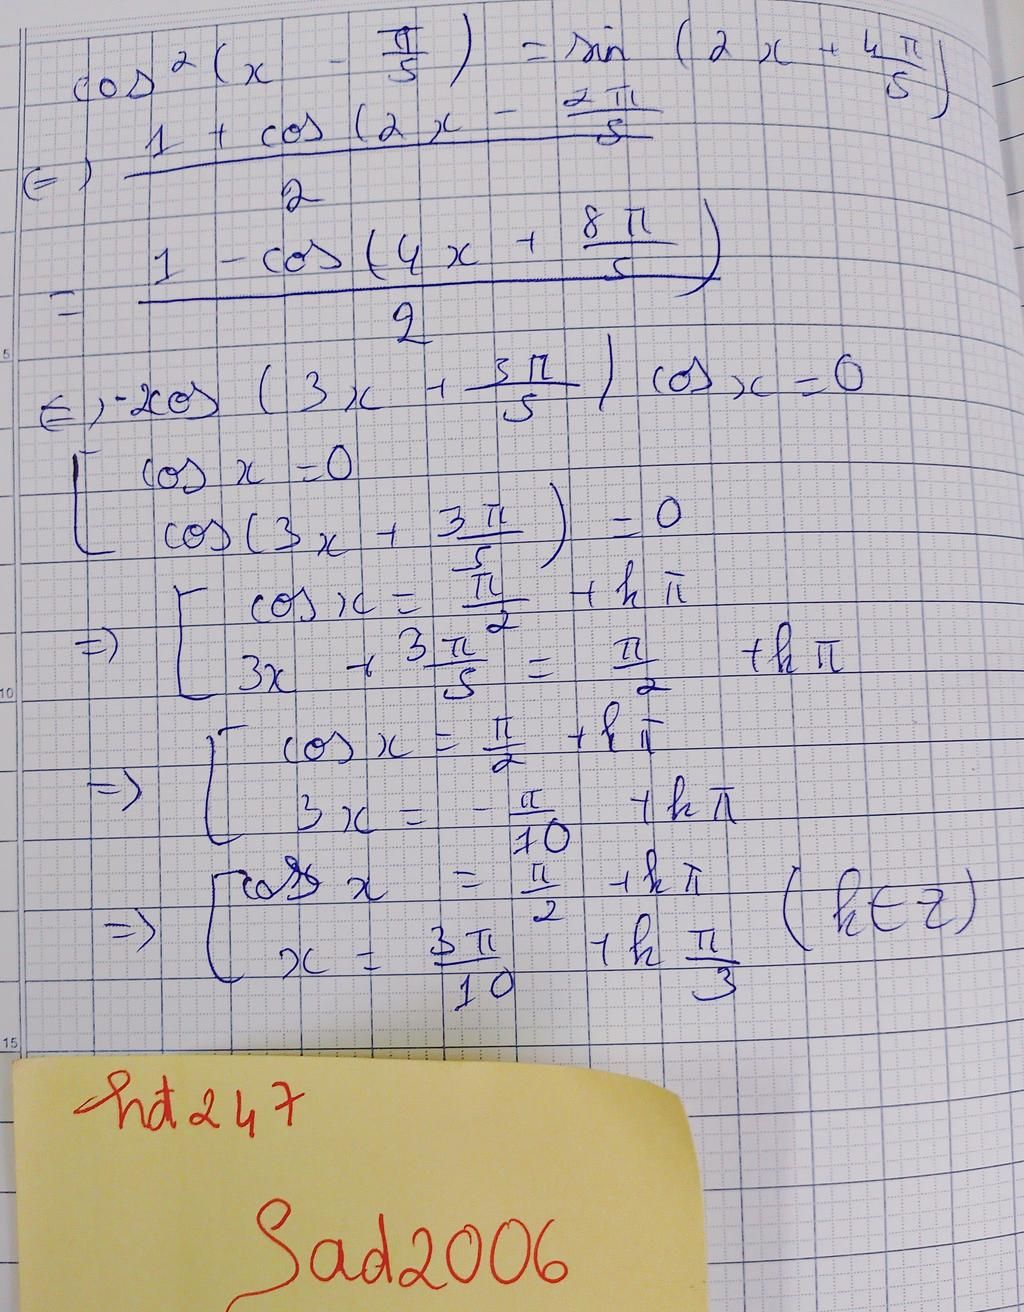 cos²(x - π/5) = sin (2x + 4π/5)
⇔ (1 + cos(2x - 2π/5)/2
= (1 - cos(4x + 8π/5))/2
⇔ -2cos (3x + 3π/5) cos x = 0
[ cos x = 0
cos(3x + 3π/5) = 0
⇒ [ cos x = π/2 + kπ
3x + 3π/5 = π/2 + kπ
⇒ [ cos x = π/2 + kπ
3x = -π/10 + kπ
⇒ [ cos x = π/2 + kπ (k ∈ Z)
x = 3π/10 + k π/3
5
10
15
hd247
Sad2006